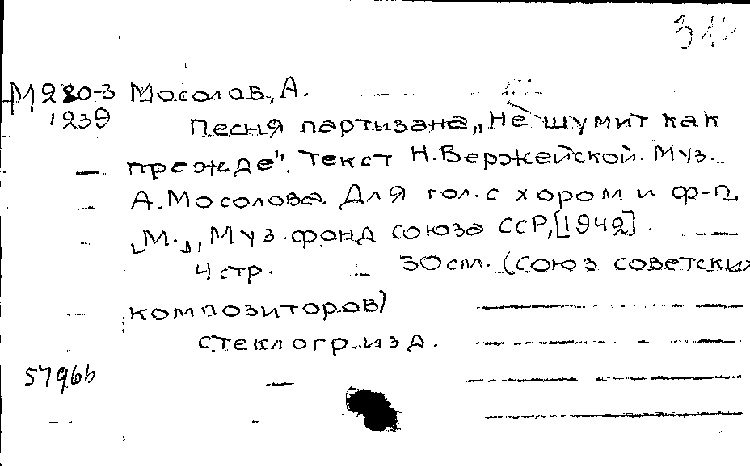 М280-3 Мосолов, А.
1239 Песня партизана „Не шумит как
прежде". Текст Н. Вержейской. Муз.
А. Мосолова. Для гол. с хором и ф-п.
[М.], Муз. фонд союза ССР, [1942].
4 стр. 30 см. (Союз советских
композиторов)
стеклогр. изд.